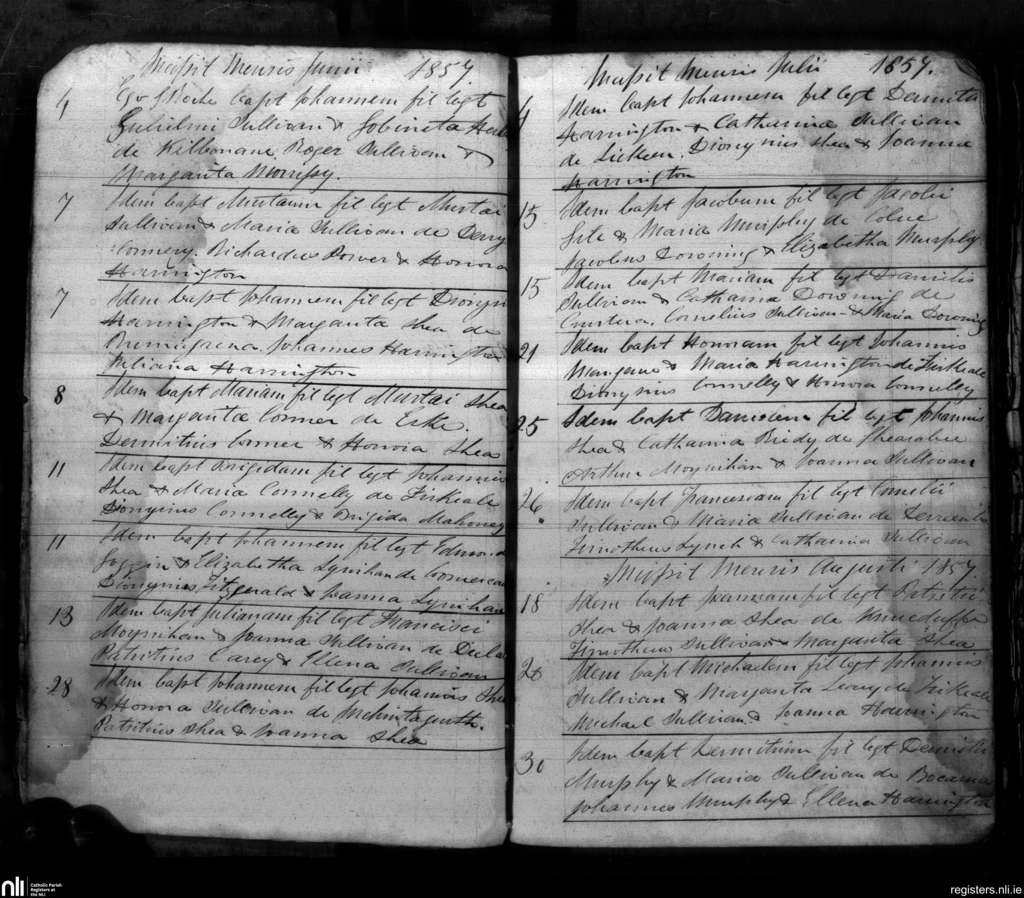 Messit Mensis Junii 1857.
4 Ego Meche bapt Johannem fil legt
Gulielmi Sullivan & Gobineta
de Kilbonane. Roger Sullivan &
Margarita Morrissy.
7 Idem bapt Murtaum fil legt Murtai
Sullivan & Maria Sullivan de Derry
Richardus Power & Honora
Harrington
7 Idem bapt Johannem fil legt Dionysii
Harrington & Margarita Shea de
Johannes Harrington
Juliana Harrington
8 Idem bapt Mariam fil legt Murtai Shea
& Margarita Conner de Eske.
Dermitius Conner & Honora Shea
11 Idem bapt Brigidam fil legt Johannis
Shea & Maria Connelly de Firkeale
Dionysius Connelly & Brigida Mahoney
11 Idem bapt Johannem fil legt Edmondi
Goggin & Elizabetha Lynihan de
Dionysius Fitzgerald & Joanna Lynihan
13 Idem bapt Julianam fil legt Francisci
Moynihan & Joanna Sullivan de
Patritius Carey & Ellena Sullivan
28 Idem bapt Johannem fil legt Johannis Shea
& Honora Sullivan de
Patritius Shea & Joanna Shea
Messit Mensis Julii 1857.
4 Idem bapt Johannem fil legt Dermitii
Harrington & Catharina Sullivan
de Dionysius Shea & Joanna
Harrington
15 Idem bapt Jacobum fil legt Jacobi
& Maria Murphy de
Jacobus Downing & Elizabetha Murphy
15 Idem bapt Mariam fil legt Danielis
Sullivan & Catharina Downing de
Cornelius Sullivan & Maria Downing
21 Idem bapt Honoram fil legt Johannis
& Maria Harrington de Firkeale
Dionysius Connelly & Honora Connelly
25 Idem bapt Danielem fil legt Johannis
Shea & Catharina Riedy de
Arthur Moynihan & Joanna Sullivan
26 Idem bapt Franciscam fil legt Cornelii
Sullivan & Maria Sullivan de
Timotheus Lynch & Catharina Sullivan
Messit Mensis Augusti 1857.
18 Idem bapt fil legt Patritii
Shea & Joanna Shea de
Timotheus Sullivan & Margarita Shea
20 Idem bapt Michaelem fil legt Johannis
Sullivan & Margarita Leary de Firkeale
Michael Sullivan & Joanna Harrington
30 Idem bapt Dermitium fil legt Dermitii
Murphy & Maria Sullivan de
Johannes Murphy & Ellena Harrington
nli
Catholic Parish
Registers at
the NLI
registers.nli.ie